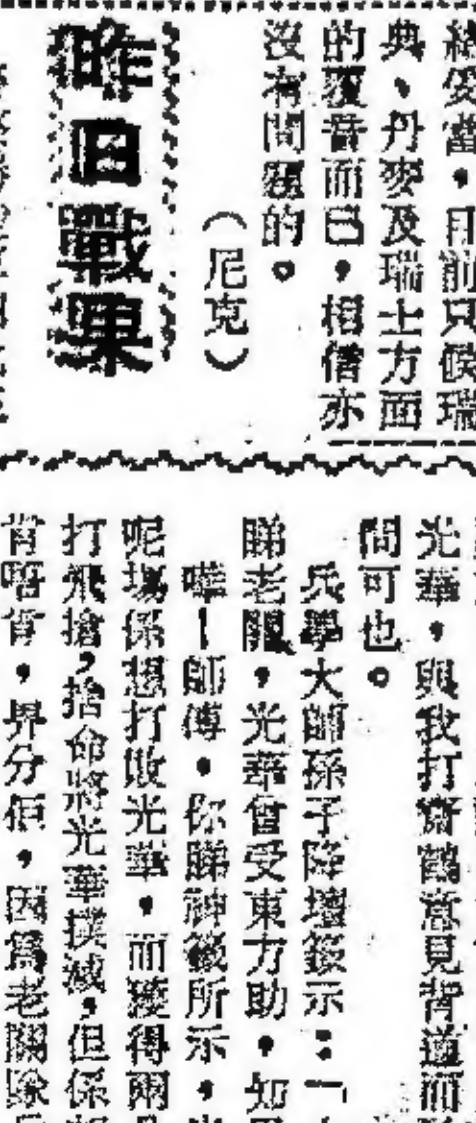 給妥當，目前只候瑞
典、丹麥及瑞士方面
的覆音而已，相信亦
沒有問題的。
（尼克）
昨日戰果
光華，與我打齋鶴意見背道而
問可也。
兵學大師孫子降壇簽示：「
睇老關，光華曾受東方助，知
嘩！師傅，你睇神簽所示，
呢塲係想打敗光華，而獲得兩
打飛擒，捨命將光華撲滅，但係
肯唔肯，畀分佢，因爲老關除